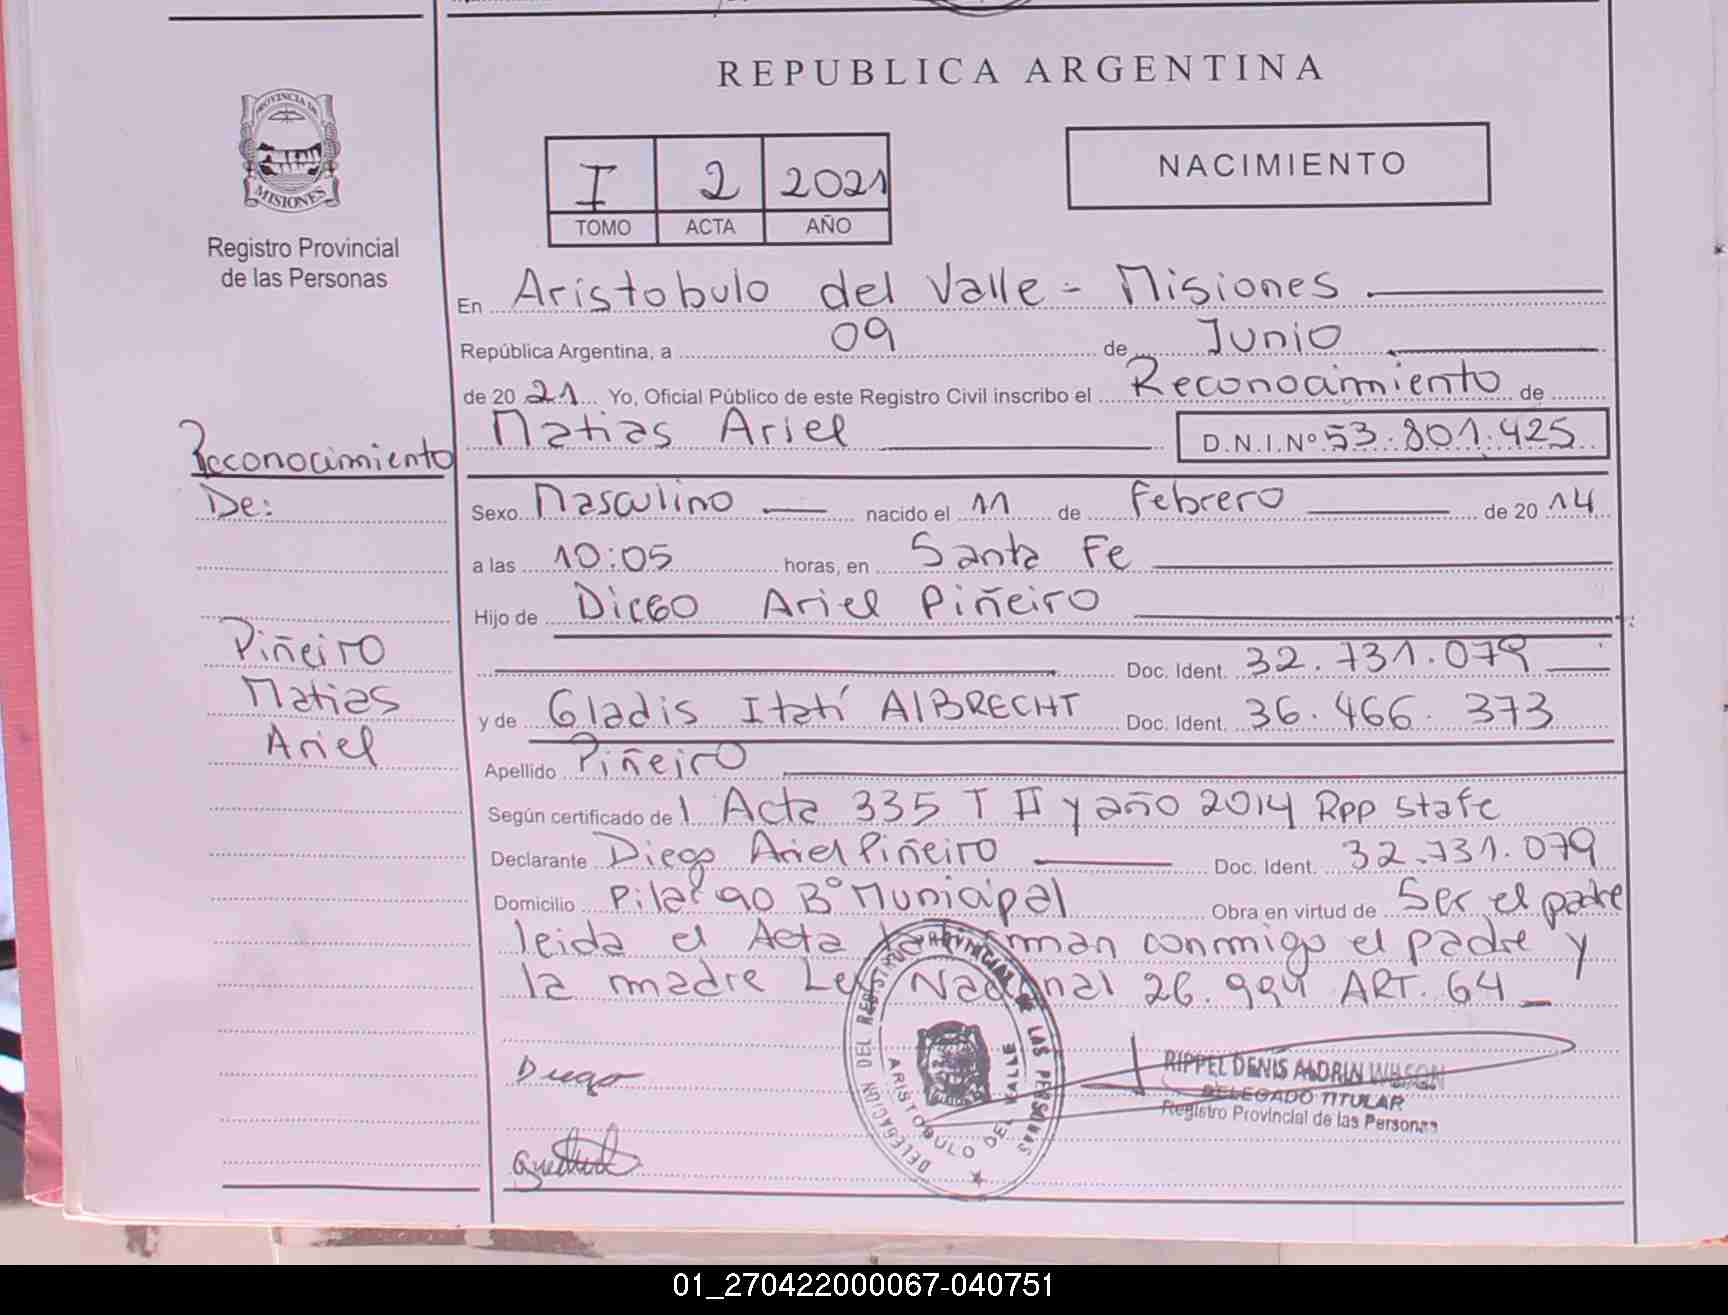 REPUBLICA ARGENTINA
PROVINCIA DE
MISIONES
Registro Provincial
de las Personas
I 2 2021
TOMO ACTA AÑO
NACIMIENTO
En Aristobulo del Valle - Misiones
República Argentina, a 09 de Junio
de 2021 Yo, Oficial Público de este Registro Civil inscribo el Reconocimiento de
Matias Ariel D.N.I.Nº 53.801.425
Reconocimiento
De:
Piñeiro
Matias
Ariel
Sexo Masculino nacido el 11 de Febrero de 2014
a las 10:05 horas, en Santa Fe
Hijo de Diego Ariel Piñeiro
Doc. Ident. 32.731.079
y de Gladis Itatí AlBRECHT Doc. Ident. 36.466.373
Apellido Piñeiro
Según certificado de l Acta 335 T II y año 2014 Rpp Stafe
Declarante Diego Ariel Piñeiro Doc. Ident. 32.731.079
Domicilio Pilar 90 Bº Municipal Obra en virtud de Ser el padre
leida el Acta la firman conmigo el padre y
la madre Ley Nacional 26.994 ART. 64
Diego
DELEGACION DEL REGISTRO PROVINCIAL DE LAS PERSONAS
ARISTOBULO DEL VALLE
RIPPEL DENIS WILSON
DELEGADO TITULAR
Registro Provincial de las Personas
01_270422000067-040751